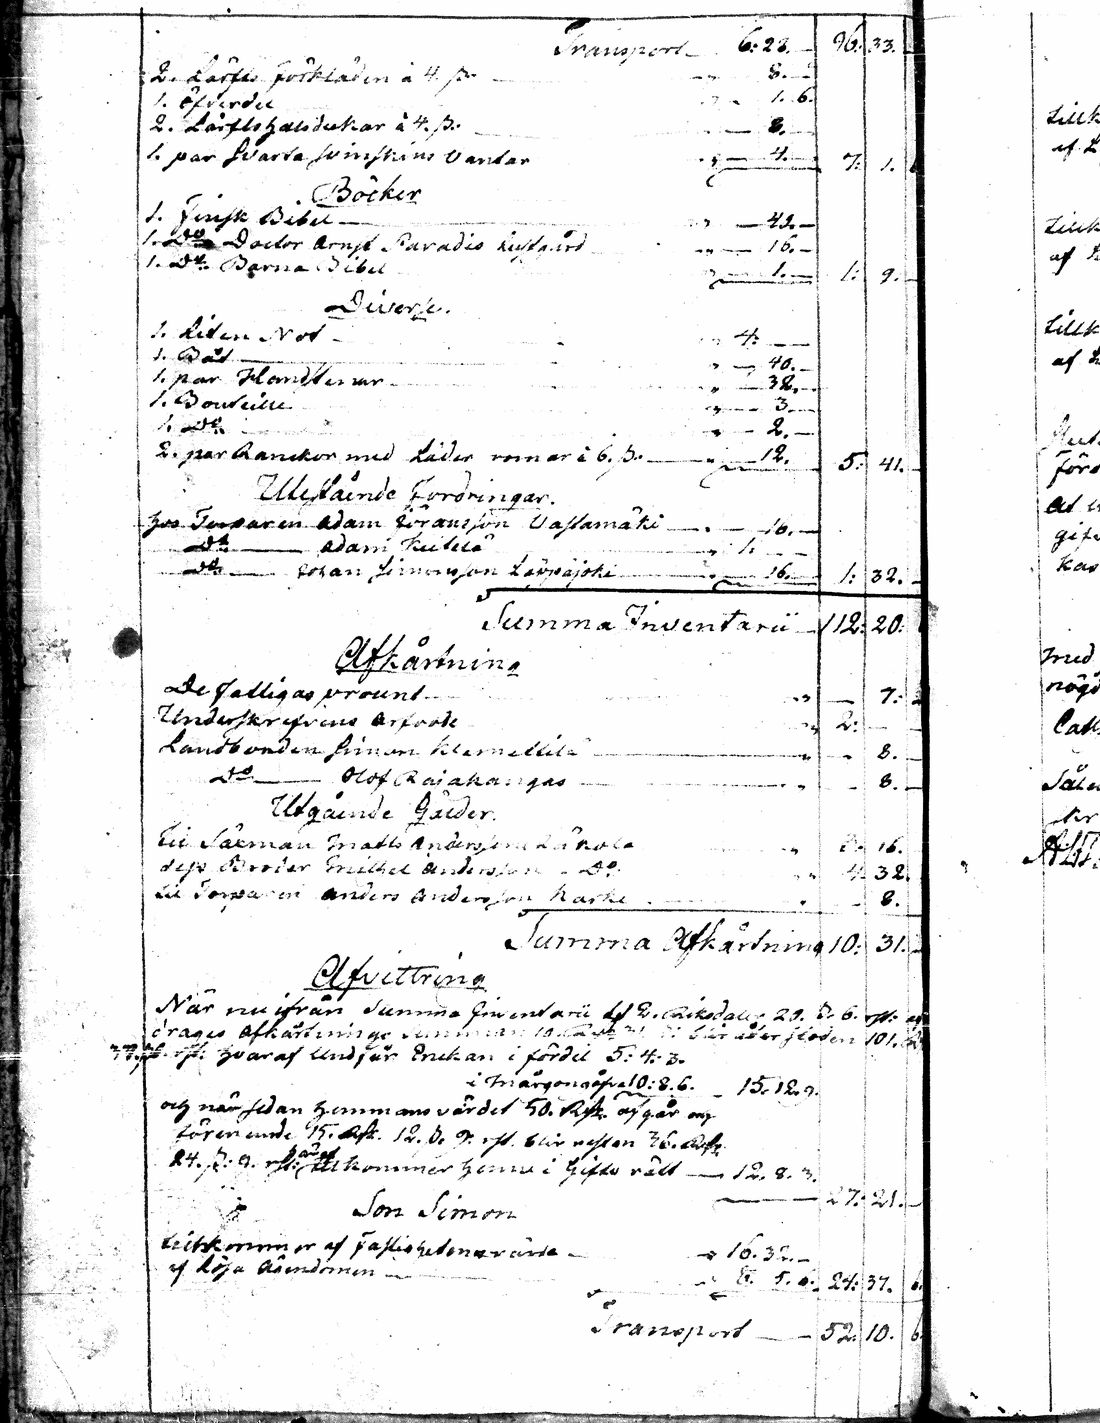 Transport 6: 28. 96: 33.
2. Lärfts Förkläden à 4. β. 8.
1. öfverdel 1. 6.
2. Lärfts halsdukar à 4. β. 8.
1. par Svarta svinskins Vantar 4. 7: 1.
Böcker
1. Finsk Bibel 42.
1. Do Doctor Arnst Paradis Lustgård 16.
1. Do Barna Bibel 1. 1: 9.
Diverse.
1. Liten Not 4:
1. Båt 40.
1. par Handkenar 32.
1. Bouteille 3.
1. Do 2.
2. par Ranckor med Läder remar à 6. β. 12. 5: 41.
Utestående Fordringar.
hos Torparen Adam Göransson Vastamäki 16.
Do Adam Keitelä 1.
Do Johan Simonsson Lappajoki 16. 1: 32.
Summa Inventarii 112: 20:
Afkårtning
De fattigas procent 7:
Underskrefvens Arfvode 2:
Landbonden Simon Klemettilä 8.
Do Olof Rajakangas 8.
Utgående Gälder.
till Sälman Matts Andersson 16.
dess Broder Michel Andersson Do. 4: 32.
till Torparen Anders Andersson Karke 8.
Summa Afkårtning 10: 31.
Afvittring
När nu ifrån Summa Inventarii 112. Riksdaler 20. β. 6. rst.
drages Afkårtnings Summan 10 blir återstoden 101.
37. β. rst. hvaraf undfår Enkan i fördel 5: 4: 3.
i Morgongåfva 10: 8. 6. 15. 12. 9.
och när sedan Hemmans värdet 50. Rdr. afgår
förenende 15. Rdr. 12. β. 9. rst. blir resten 36. Rdr
24. β. 9. rst: tilkommer henne i Giftorätt 12. 8. 3.
27: 21.
Son Simon
tillkommer af Fastighetens värde 16. 32.
af Lösa Ägendomen 8. 5. 6. 24: 37. 6.
Transport 52: 10. 6.
tillk
af L
tillk
af
tillk
af
förd
at
gif
kas
med
nöga
Cat
Såle
kr